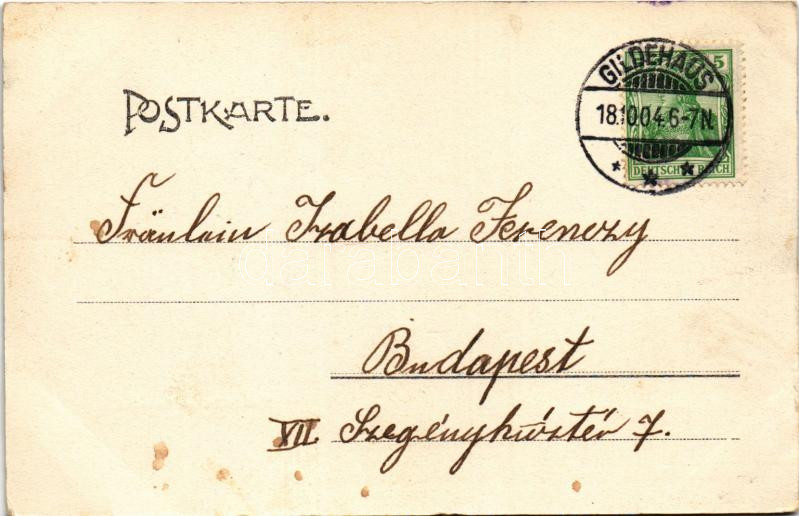 GILDEHAUS
18.10.04.6-7N.
5
DEUTSCHES REICH
POSTKARTE.
Fräulein Izabella Ferenczy
Budapest
VII. Szegényház tér 7.